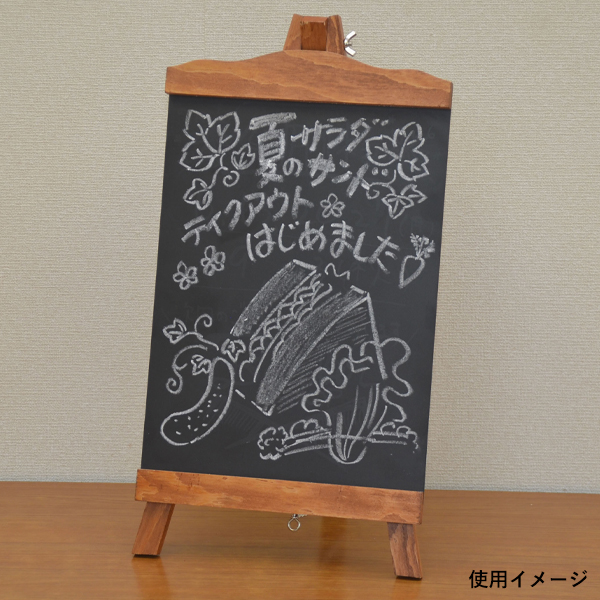 夏サラダ
のサンド
テイクアウト
はじめました
使用イメージ